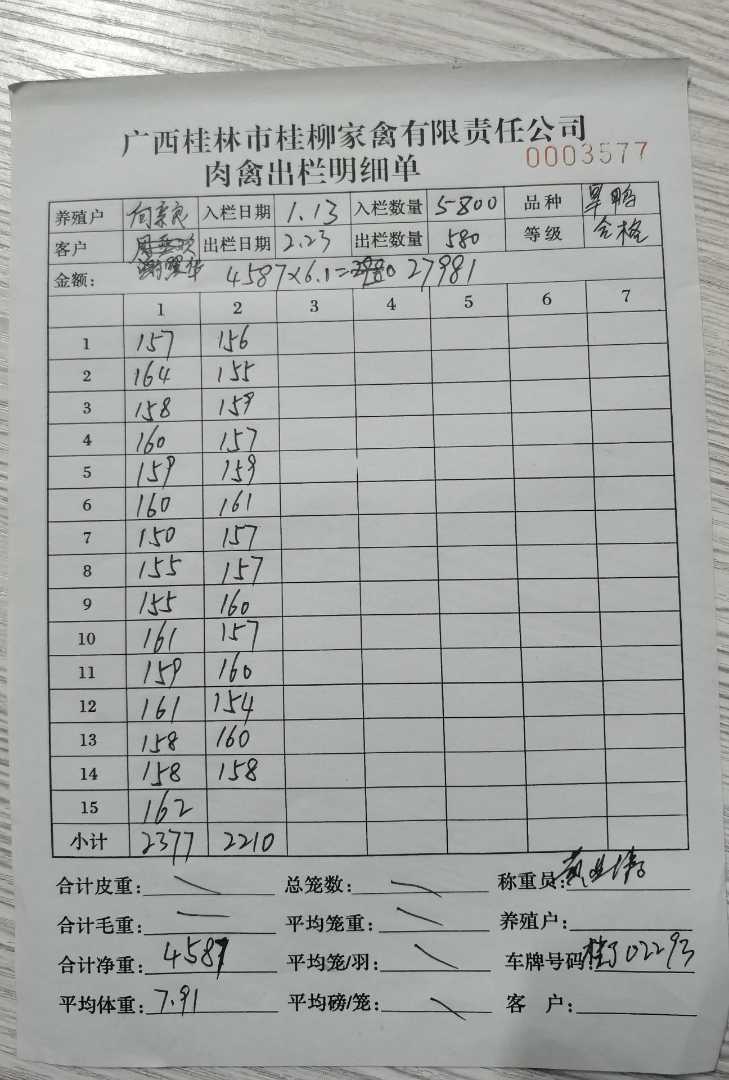 广西桂林市桂柳家禽有限责任公司
肉禽出栏明细单 0003577
养殖户 入栏日期 1.13 入栏数量 5800 品种 旱鸭
客户 出栏日期 2.23 出栏数量 580 等级 合格
金额: 4587×6.1= 27981
1 2 3 4 5 6 7
1 157 156
2 164 155
3 158 159
4 160 157
5 159 159
6 160 161
7 150 157
8 155 157
9 155 160
10 161 157
11 159 160
12 161 154
13 158 160
14 158 158
15 162
小计 2377 2210
合计皮重: 总笼数: 称重员:
合计毛重: 平均笼重: 养殖户:
合计净重: 4587 平均笼/羽: 车牌号码: 02293
平均体重: 7.91 平均磅/笼: 客 户: